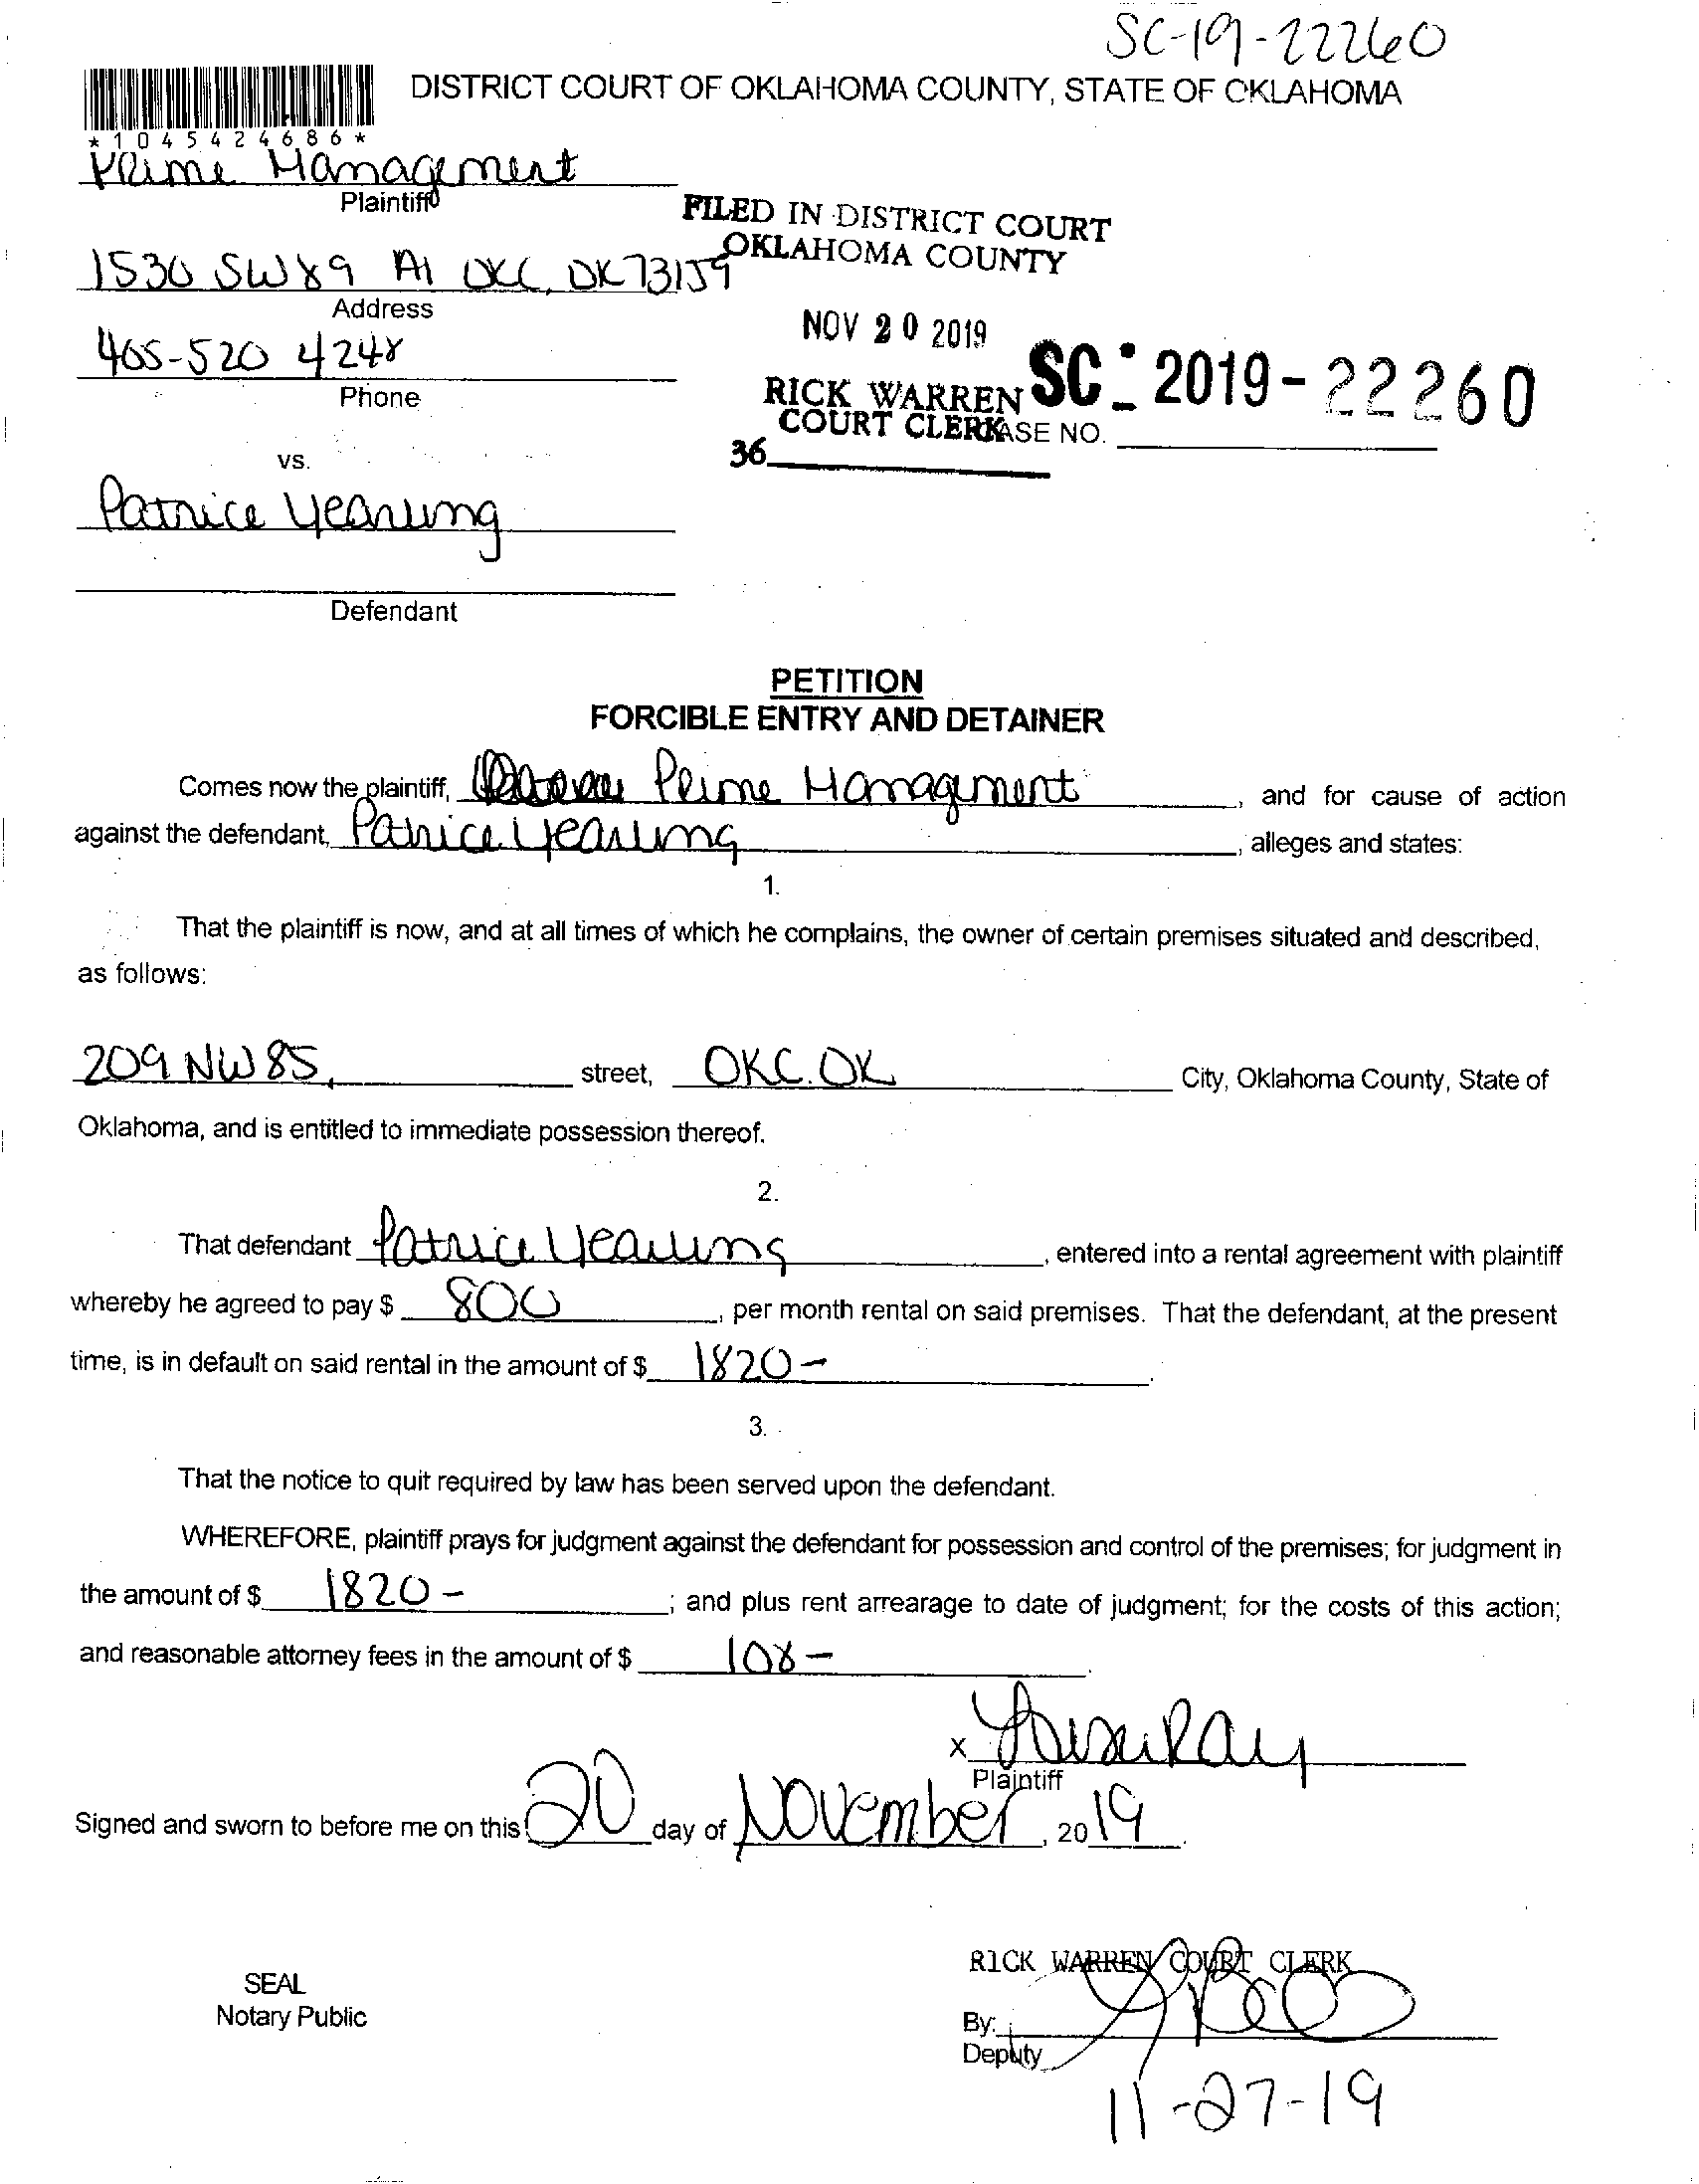 SC-19-22260
DISTRICT COURT OF OKLAHOMA COUNTY, STATE OF OKLAHOMA
*1045424686*
Prime Management
Plaintiff
FILED IN DISTRICT COURT
OKLAHOMA COUNTY
1530 SW 89 A1 OKC, OK 73159
Address
NOV 20 2019
405-520 4248
Phone
RICK WARREN
COURT CLERK
SC - 2019 - 22260
CASE NO.
36
vs.
Patrice Yearling
Defendant
PETITION
FORCIBLE ENTRY AND DETAINER
Comes now the plaintiff, Prime Management, and for cause of action
against the defendant, Patrice Yearling, alleges and states:
1.
That the plaintiff is now, and at all times of which he complains, the owner of certain premises situated and described,
as follows:
209 NW 85, street, OKC. OK City, Oklahoma County, State of
Oklahoma, and is entitled to immediate possession thereof.
2.
That defendant Patrice Yearling, entered into a rental agreement with plaintiff
whereby he agreed to pay $ 800, per month rental on said premises. That the defendant, at the present
time, is in default on said rental in the amount of $ 1820-.
3.
That the notice to quit required by law has been served upon the defendant.
WHEREFORE, plaintiff prays for judgment against the defendant for possession and control of the premises; for judgment in
the amount of $ 1820-; and plus rent arrearage to date of judgment; for the costs of this action;
and reasonable attorney fees in the amount of $ 108-.
X
Plaintiff
Signed and sworn to before me on this 20 day of November, 2019.
RICK WARREN COURT CLERK
SEAL
Notary Public
By:
Deputy
11-27-19